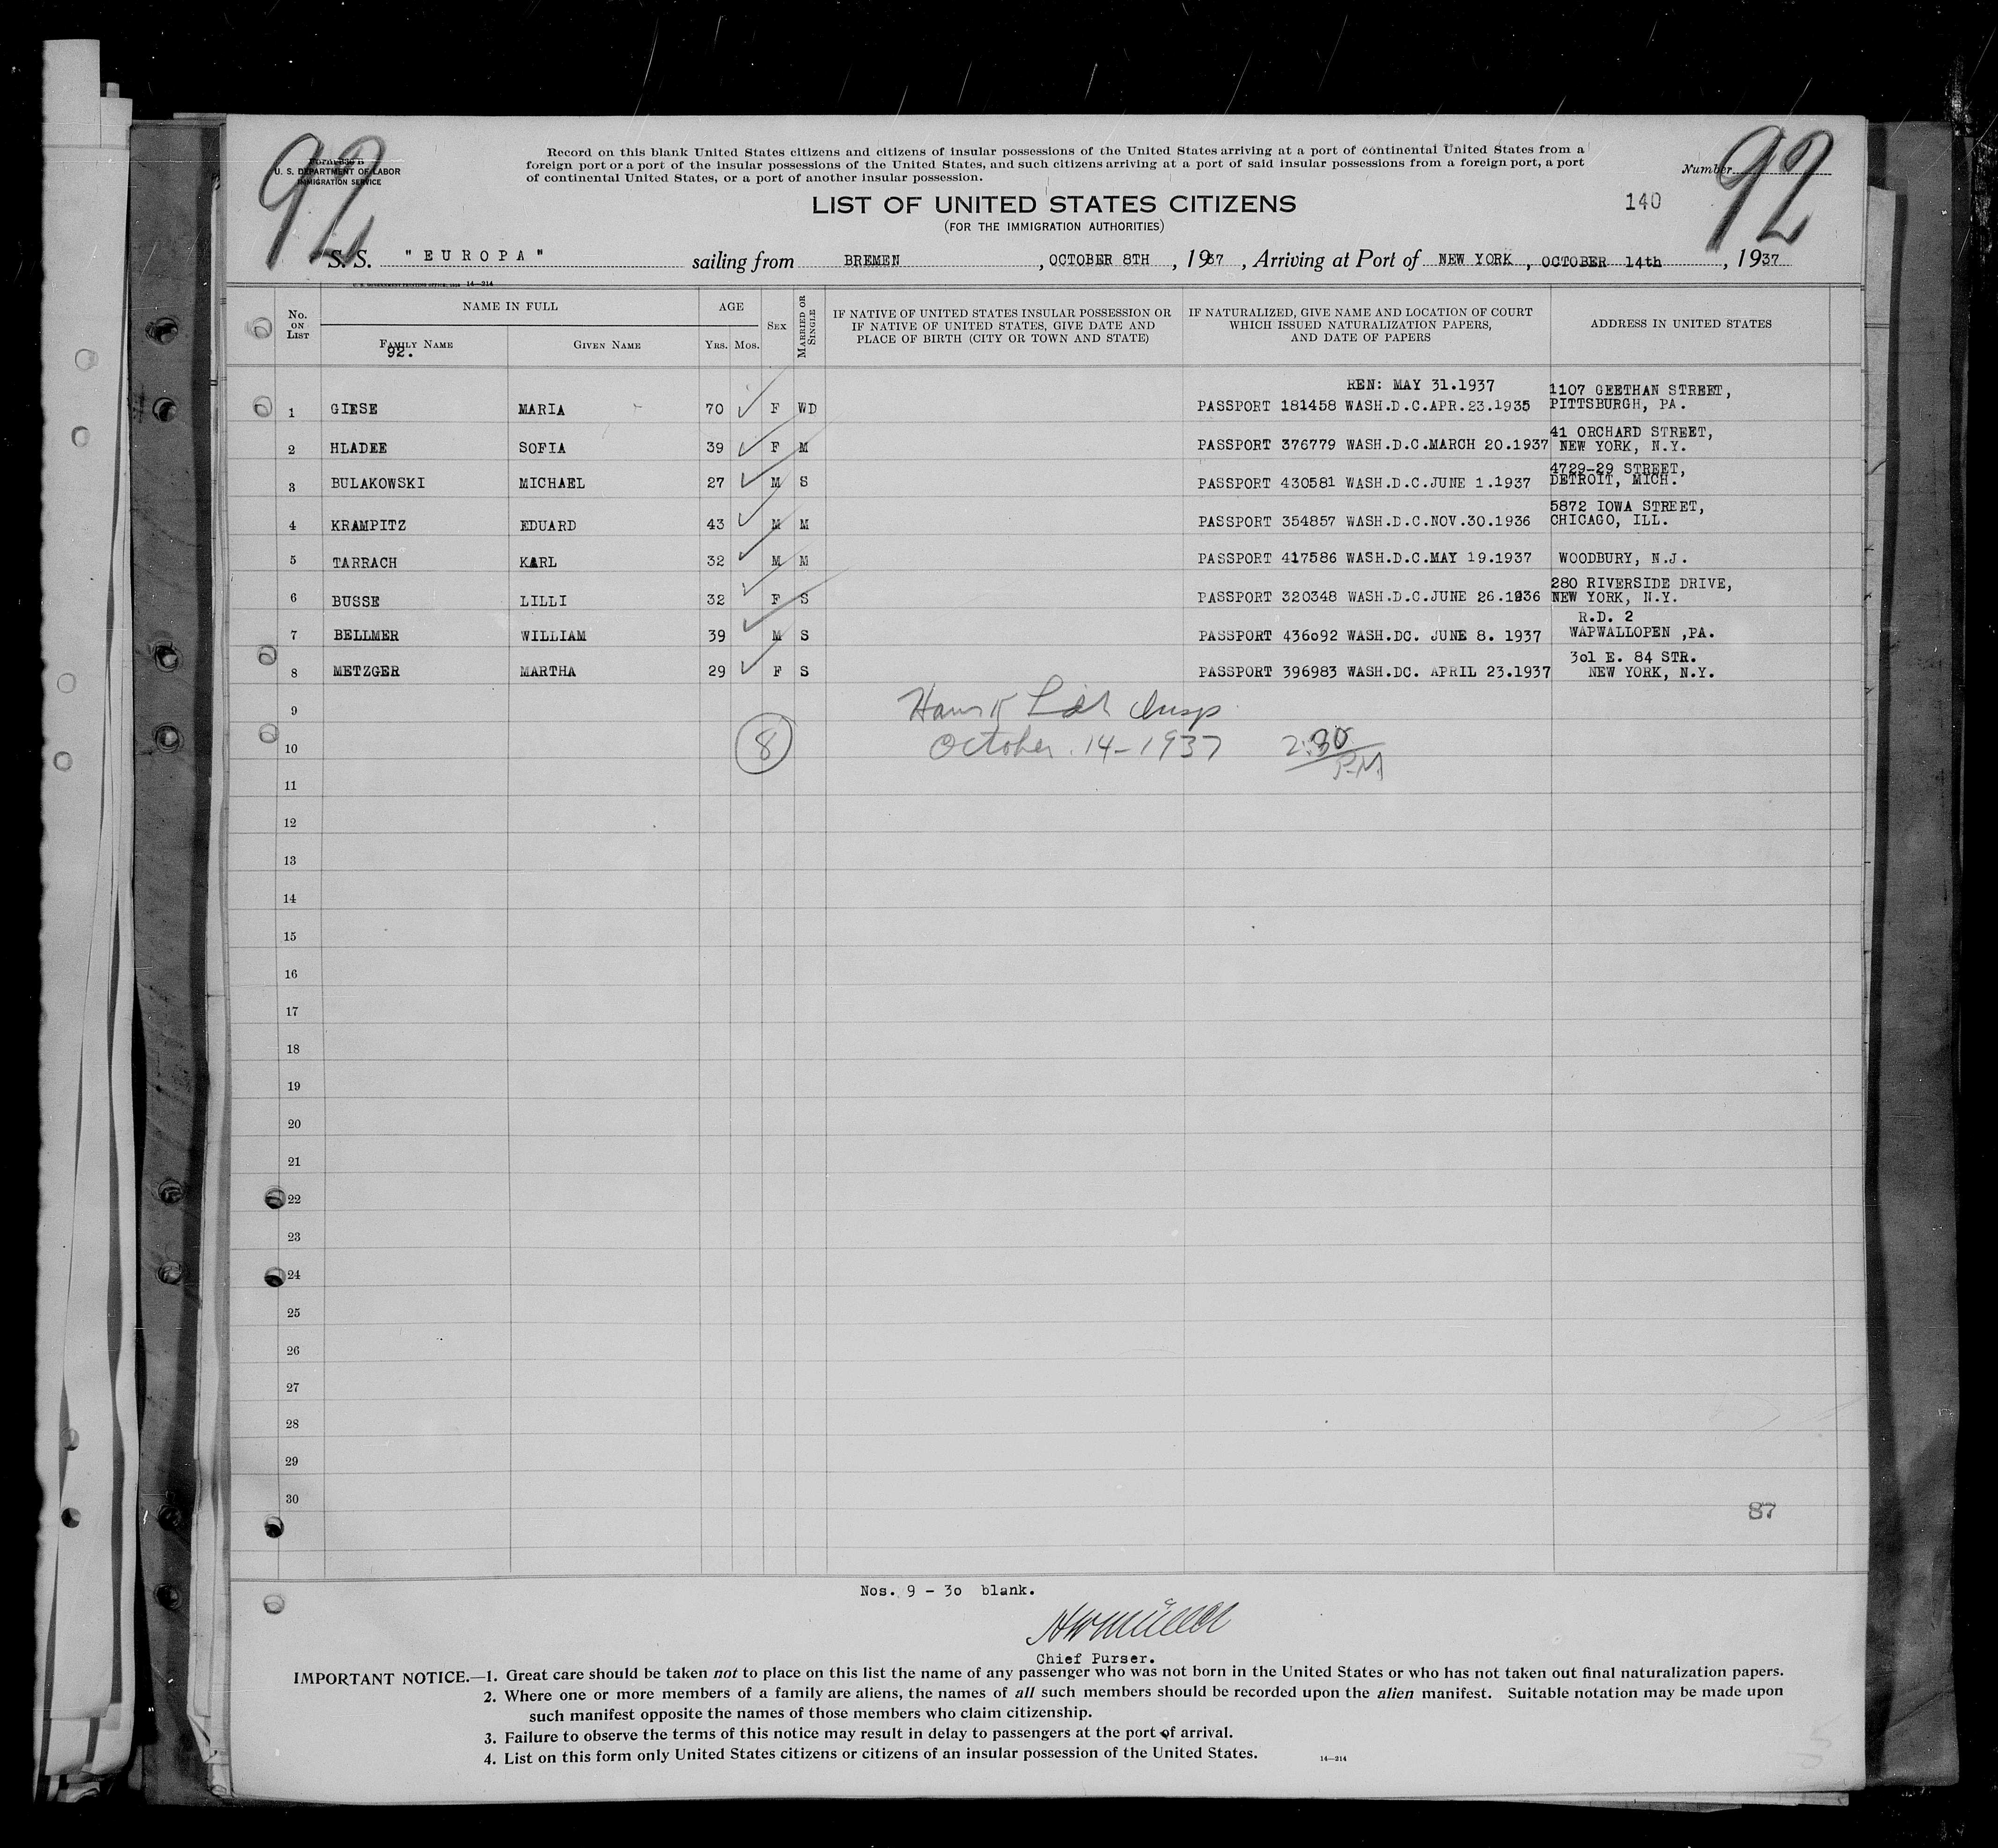 92
Form 630 B
U. S. DEPARTMENT OF LABOR
IMMIGRATION SERVICE
Record on this blank United States citizens and citizens of insular possessions of the United States arriving at a port of continental United States from a
foreign port or a port of the insular possessions of the United States, and such citizens arriving at a port of said insular possessions from a foreign port, a port
of continental United States, or a port of another insular possession.
Number
92
LIST OF UNITED STATES CITIZENS
140
(FOR THE IMMIGRATION AUTHORITIES)
S. S. "EUROPA" sailing from BREMEN, OCTOBER 8TH, 1937, Arriving at Port of NEW YORK, OCTOBER 14th, 1937
14—214
No. ON LIST NAME IN FULL AGE SEX MARRIED OR SINGLE IF NATIVE OF UNITED STATES INSULAR POSSESSION OR IF NATIVE OF UNITED STATES, GIVE DATE AND PLACE OF BIRTH (CITY OR TOWN AND STATE) IF NATURALIZED, GIVE NAME AND LOCATION OF COURT WHICH ISSUED NATURALIZATION PAPERS, AND DATE OF PAPERS ADDRESS IN UNITED STATES
FAMILY NAME GIVEN NAME YRS. MOS.
92.
REN: MAY 31.1937 1107 GEETHAN STREET,
1 GIESE MARIA 70 F WD PASSPORT 181458 WASH.D.C.APR.23.1935 PITTSBURGH, PA.
41 ORCHARD STREET,
2 HLADEE SOFIA 39 F M PASSPORT 376779 WASH.D.C.MARCH 20.1937 NEW YORK, N.Y.
4729-29 STREET,
3 BULAKOWSKI MICHAEL 27 M S PASSPORT 430581 WASH.D.C.JUNE 1.1937 DETROIT, MICH.'
5872 IOWA STREET,
4 KRAMPITZ EDUARD 43 M M PASSPORT 354857 WASH.D.C.NOV.30.1936 CHICAGO, ILL.
5 TARRACH KARL 32 M M PASSPORT 417586 WASH.D.C.MAY 19.1937 WOODBURY, N.J.
280 RIVERSIDE DRIVE,
6 BUSSE LILLI 32 F S PASSPORT 320348 WASH.D.C.JUNE 26.1936 NEW YORK, N.Y.
R.D. 2
7 BELLMER WILLIAM 39 M S PASSPORT 436o92 WASH.DC. JUNE 8. 1937 WAPWALLOPEN ,PA.
3o1 E. 84 STR.
8 METZGER MARTHA 29 F S PASSPORT 396983 WASH.DC. APRIL 23.1937 NEW YORK, N.Y.
9 Insp
10 8 October. 14-1937 2:30 P.M
11
12
13
14
15
16
17
18
19
20
21
22
23
24
25
26
27
28
29
30
87
Nos. 9 - 3o blank.
Chief Purser.
IMPORTANT NOTICE.—1. Great care should be taken not to place on this list the name of any passenger who was not born in the United States or who has not taken out final naturalization papers.
2. Where one or more members of a family are aliens, the names of all such members should be recorded upon the alien manifest. Suitable notation may be made upon
such manifest opposite the names of those members who claim citizenship.
3. Failure to observe the terms of this notice may result in delay to passengers at the port of arrival.
4. List on this form only United States citizens or citizens of an insular possession of the United States.
14—214